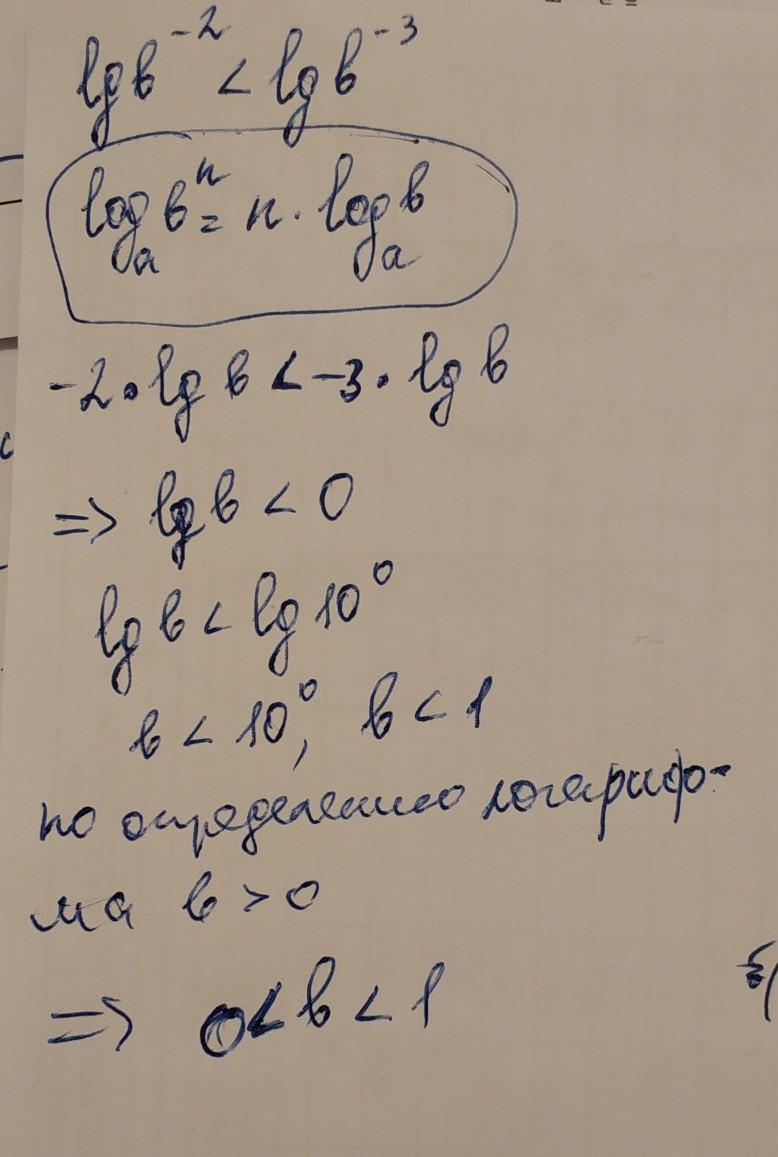 lg b⁻² < lg b⁻³
logₐ bⁿ = n · logₐ b
-2 · lg b < -3 · lg b
=> lg b < 0
lg b < lg 10⁰
b < 10⁰, b < 1
по определению логариф-
ма b > 0
=> 0 < b < 1